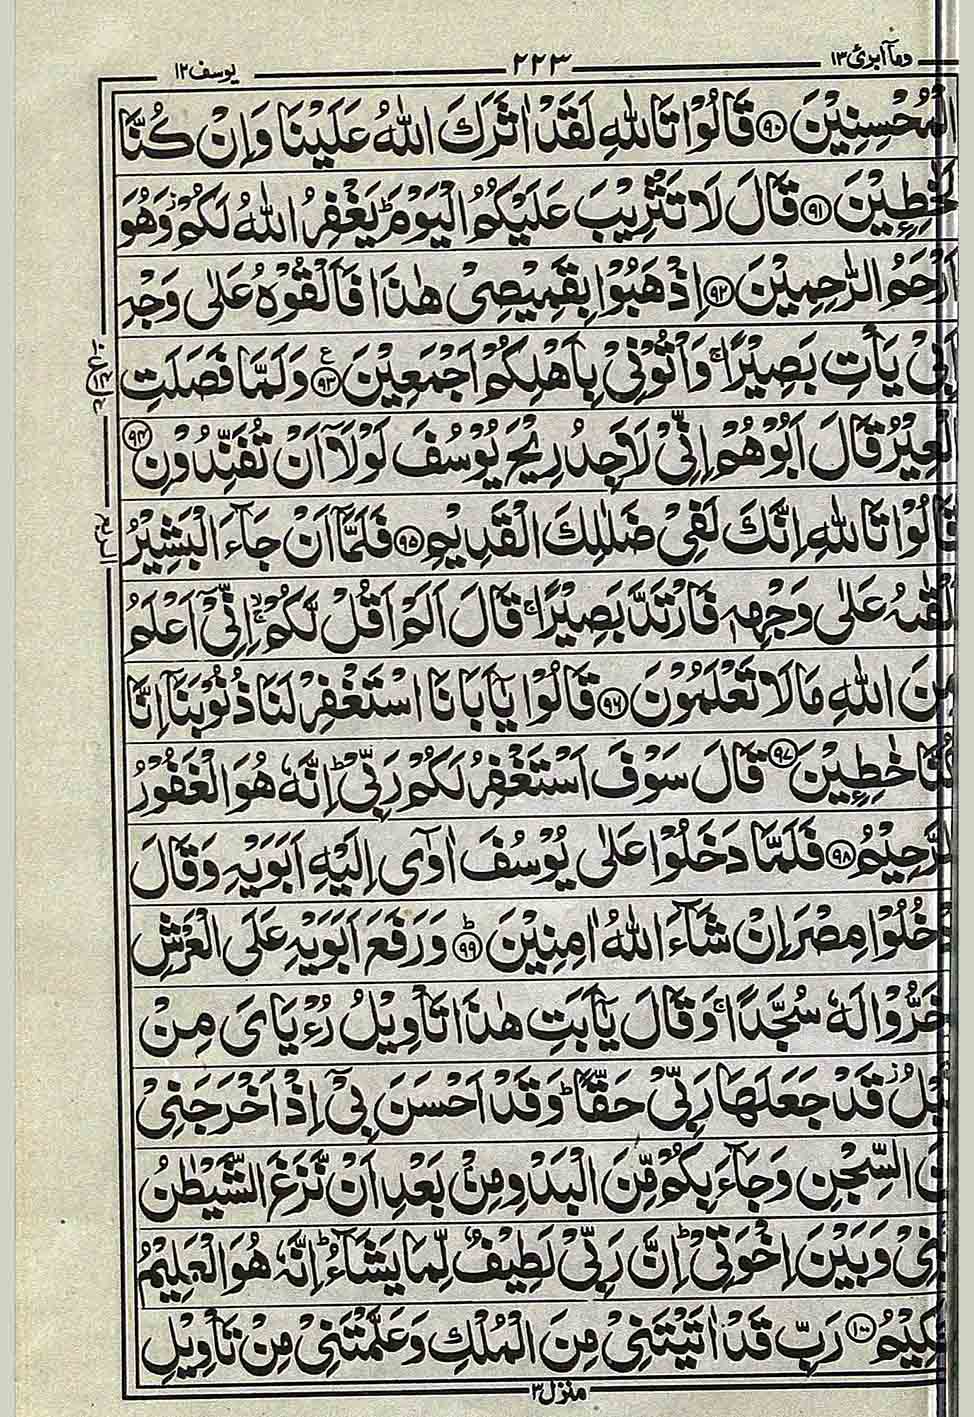 وما ابرئ ١٣
٢٢٣
يوسف ١٢
الْمُحْسِنِيْنَ ﴿٩٠﴾ قَالُوْا تَاللّٰهِ لَقَدْ اٰثَرَكَ اللّٰهُ عَلَيْنَا وَاِنْ كُنَّا
لَخٰطِـِٕيْنَ ﴿٩١﴾ قَالَ لَا تَثْرِيْبَ عَلَيْكُمُ الْيَوْمَ ؕ يَغْفِرُ اللّٰهُ لَكُمْ ؗ وَهُوَ
اَرْحَمُ الرّٰحِمِيْنَ ﴿٩٢﴾ اِذْهَبُوْا بِقَمِيْصِىْ هٰذَا فَاَلْقُوْهُ عَلٰى وَجْهِ
اَبِىْ يَاْتِ بَصِيْرًا ۚ وَاْتُوْنِىْ بِاَهْلِكُمْ اَجْمَعِيْنَ ﴿٩٣﴾ ع وَلَمَّا فَصَلَتِ
الْعِيْرُ قَالَ اَبُوْهُمْ اِنِّىْ لَاَجِدُ رِيْحَ يُوْسُفَ لَوْلَاۤ اَنْ تُفَنِّدُوْنِ ﴿٩٤﴾
قَالُوْا تَاللّٰهِ اِنَّكَ لَفِىْ ضَلٰلِكَ الْقَدِيْمِ ﴿٩٥﴾ فَلَمَّاۤ اَنْ جَآءَ الْبَشِيْرُ
اَلْقٰىهُ عَلٰى وَجْهِهٖ فَارْتَدَّ بَصِيْرًا ۚ قَالَ اَلَمْ اَقُلْ لَّكُمْ ۚۙ اِنِّىْۤ اَعْلَمُ
مِنَ اللّٰهِ مَا لَا تَعْلَمُوْنَ ﴿٩٦﴾ قَالُوْا يٰۤاَبَانَا اسْتَغْفِرْ لَنَا ذُنُوْبَنَاۤ اِنَّا
كُنَّا خٰطِـِٕيْنَ ﴿٩٧﴾ قَالَ سَوْفَ اَسْتَغْفِرُ لَكُمْ رَبِّىْ ؕ اِنَّهٗ هُوَ الْغَفُوْرُ
الرَّحِيْمُ ﴿٩٨﴾ فَلَمَّا دَخَلُوْا عَلٰى يُوْسُفَ اٰوٰۤى اِلَيْهِ اَبَوَيْهِ وَقَالَ
ادْخُلُوْا مِصْرَ اِنْ شَآءَ اللّٰهُ اٰمِنِيْنَ ؕ ﴿٩٩﴾ وَرَفَعَ اَبَوَيْهِ عَلَى الْعَرْشِ
وَخَرُّوْا لَهٗ سُجَّدًا ۚ وَقَالَ يٰۤاَبَتِ هٰذَا تَاْوِيْلُ رُءْيَاىَ مِنْ
قَبْلُ ؗ قَدْ جَعَلَهَا رَبِّىْ حَقًّا ؕ وَقَدْ اَحْسَنَ بِىْۤ اِذْ اَخْرَجَنِىْ
مِنَ السِّجْنِ وَجَآءَ بِكُمْ مِّنَ الْبَدْوِ مِنْۢ بَعْدِ اَنْ نَّزَغَ الشَّيْطٰنُ
بَيْنِىْ وَبَيْنَ اِخْوَتِىْ ؕ اِنَّ رَبِّىْ لَطِيْفٌ لِّمَا يَشَآءُ ؕ اِنَّهٗ هُوَ الْعَلِيْمُ
الْحَكِيْمُ ﴿١٠٠﴾ رَبِّ قَدْ اٰتَيْتَنِىْ مِنَ الْمُلْكِ وَعَلَّمْتَنِىْ مِنْ تَاْوِيْلِ
منزل ٣